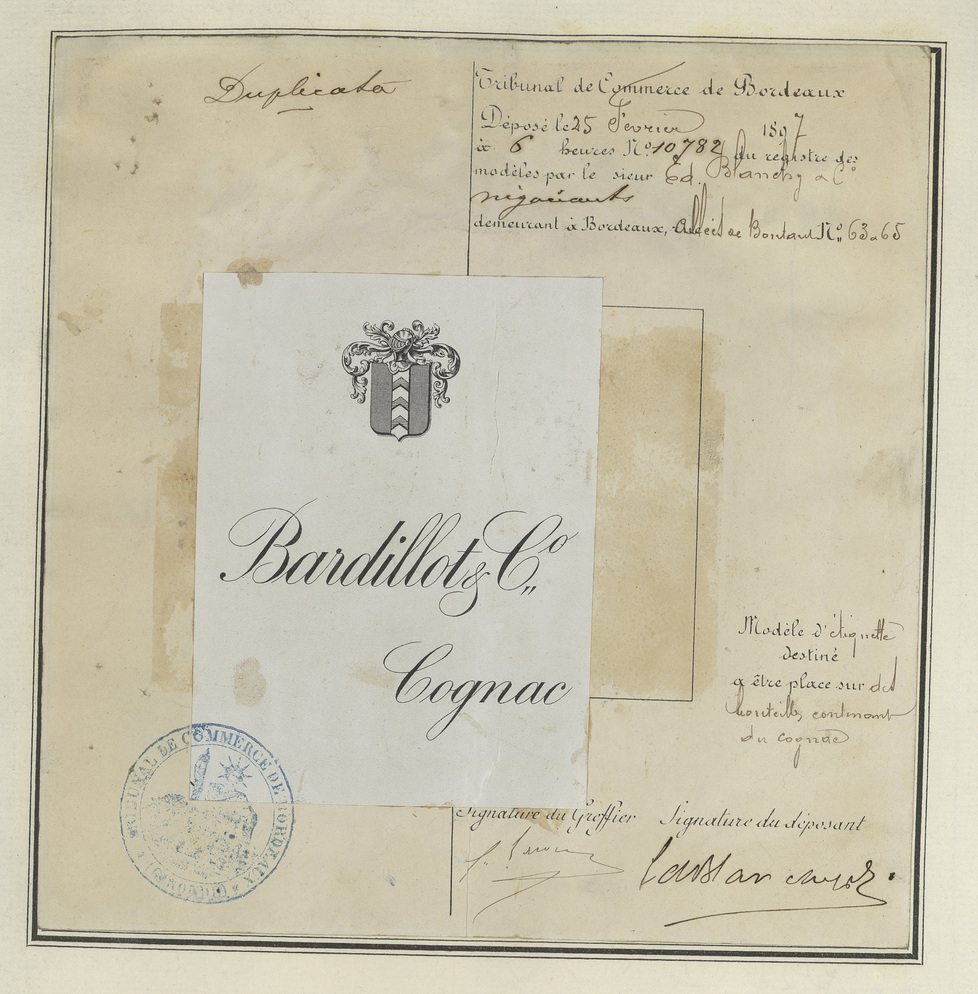 Duplicata
Tribunal de Commerce de Bordeaux
Déposé le 25 Fevrier 1897
à 6 heures No 10782 du registre des
modèles par le sieur Ed. Blanchy & Co
négociants
demeurant à Bordeaux, de Boutaut No 63 a 65
Bardillot & Co
Cognac
Modèle d'étiquette
destiné
a être place sur des
bouteilles contenant
du cognac
TRIBUNAL DE COMMERCE DE BORDEAUX
(GIRONDE)
Signature du Greffier Signature du déposant
Ed Blanchy & Co